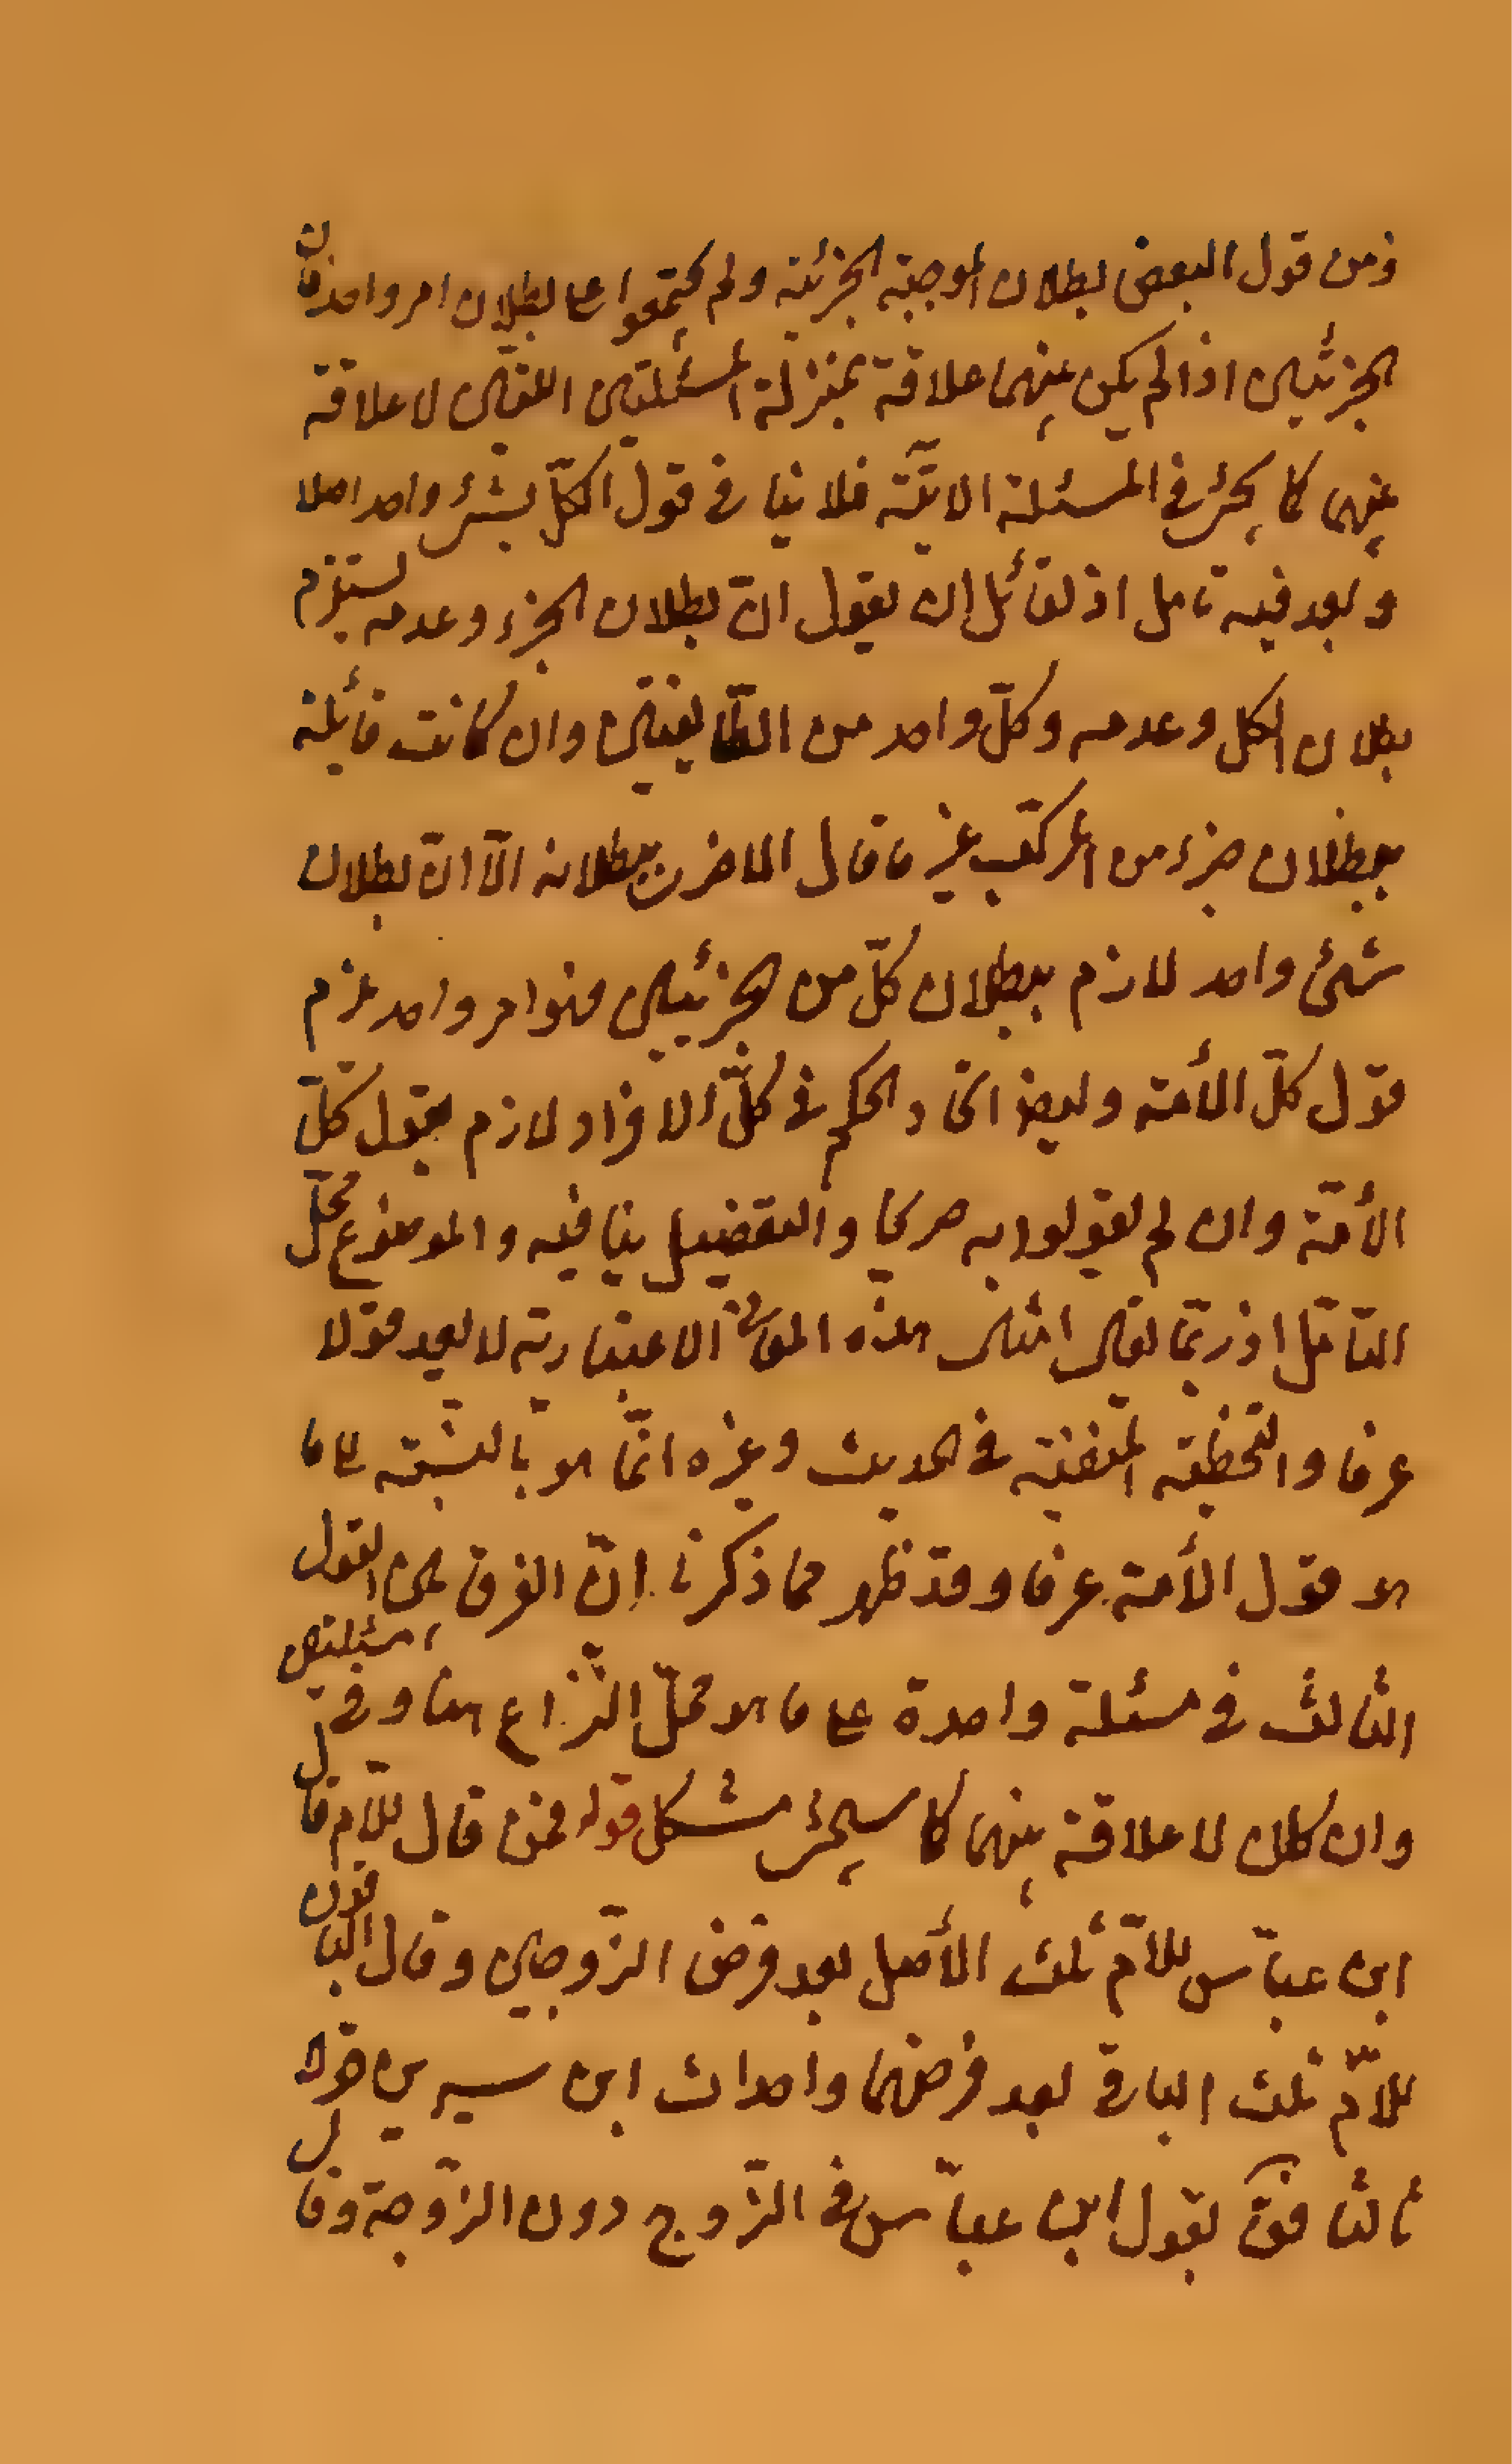 ومن قول البعض بطلان الموجبة الجزئية ولم يجتمعوا على بطلان امر واحد فان
الجزئين اذا لم يكن بينهما علاقة بمنزلة المسئلتين اللتين لا علاقة
بينهما كما يجئ في المسئلة الاتية فلا ينافي قول الكل بشئ واحد اصلا
وبعد فيه تامل اذ لقائل ان يقول ان بطلان الجزء وعدمه يستلزم
بطلان الكل وعدمه وكل واحد من الطايفتين وان كانت قائلة
ببطلان جزء من المركب غير ما قال الاخر ببطلانه الا ان بطلان
شئ واحد لازم ببطلان كل من الجزئيين فهو امر واحد لزم
قول كل الأمة وايضا اتحاد الحكم في كل الافراد لازم بقول كل
الأمة وان لم يقولوا به صريحا والتفصيل ينافيه والموضوع محل
التامل اذ ربما يقال امثال هذه المعاني الاعتبارية لا يعد قولا
عرفا والتخطئة المنفية في الحديث وغيره انما هو بالنسبة الى ما
هو قول الأمة عرفا وقد ظهر مما ذكرنا ان الفرق بين القول
الثالث في مسئلة واحدة على ما هو محل النزاع هنا وفي مسئلتين
وان كان لا علاقة بينهما كما سيجئ مشكل قوله فمن قال للام قال
ابن عباس للام ثلث الأصل بعد فرض الزوجين وقال الباقون
للام ثلث الباقي بعد فرضهما واحداث ابن سيرين قولا
ثالثا فقال بقول ابن عباس في الزوج دون الزوجة وقال